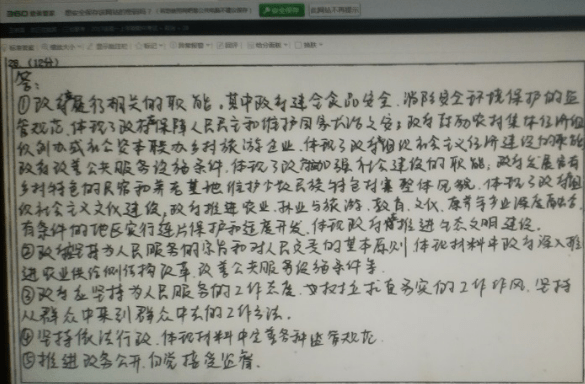 28. (12分)
答:
①政府履行相关的职能。其中政府建念食品安全、消防安全环境保护的监
管规范,体现了政府保障人民民主和维护国家长治久安;政府鼓励农村集体经济组
织创办或和公资本联办乡村旅游企业,体现了政府组织社会主义经济建设的职能
政府改善公共服务设施条件,体现了政府加强社会建设的职能;政府发展具有
乡村特色的民宿和养老基地维护少数民族特色村寨整体风貌,体现了政府组
织社会主义文化建设,政府推进农业、林业与旅游、教育、文化、康养等产业深度融合,
有条件的地区实行连片保护和适度开发,体现政府推进生态文明建设。
②政府坚持为人民服务的宗旨和对人民负责的基本原则 体现材料中政府深入推
进农业供给侧结构改革,改善公共服务设施条件等
③政府应坚持为人民服务的工作态度、求真务实的工作作风、坚持
从群众中来到群众中去的工作方法。
④坚持依法行政,体现材料中完善各种监管规范
⑤推进政务公开,自觉接受监督。